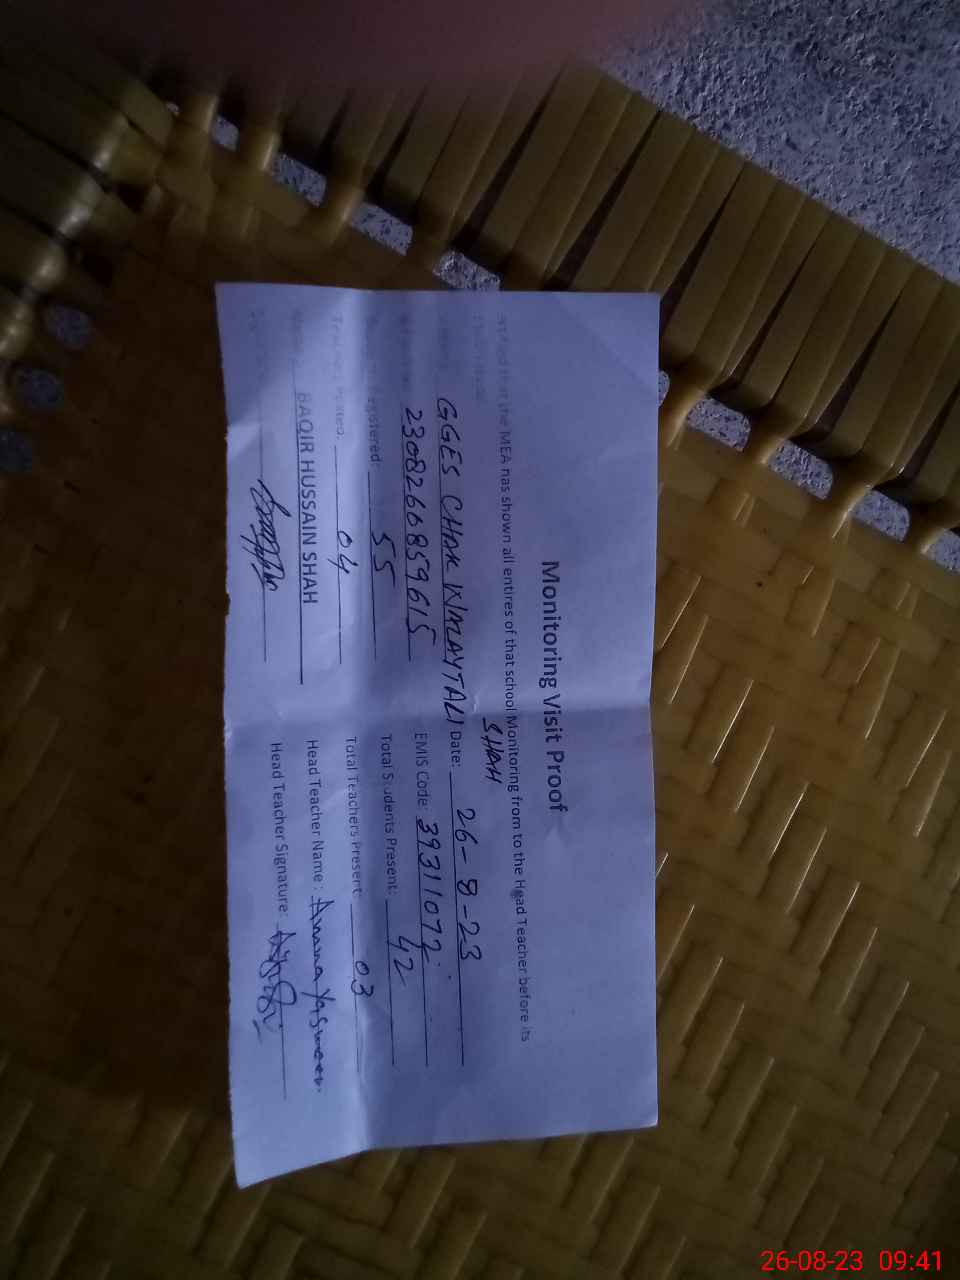 Monitoring Visit Proof
that the MEA has shown all entires of that school Monitoring from to the Head Teacher before its
SHAH
GGES CHAK WALAYTALI Date: 26-8-23
2308260859615 EMIS Code: 39311072
registered: 55 Total Students Present: 42
04 Total Teachers Present: 03
BAQIR HUSSAIN SHAH Head Teacher Name: Amna Yasmeen
Head Teacher Signature:
26-08-23 09:41